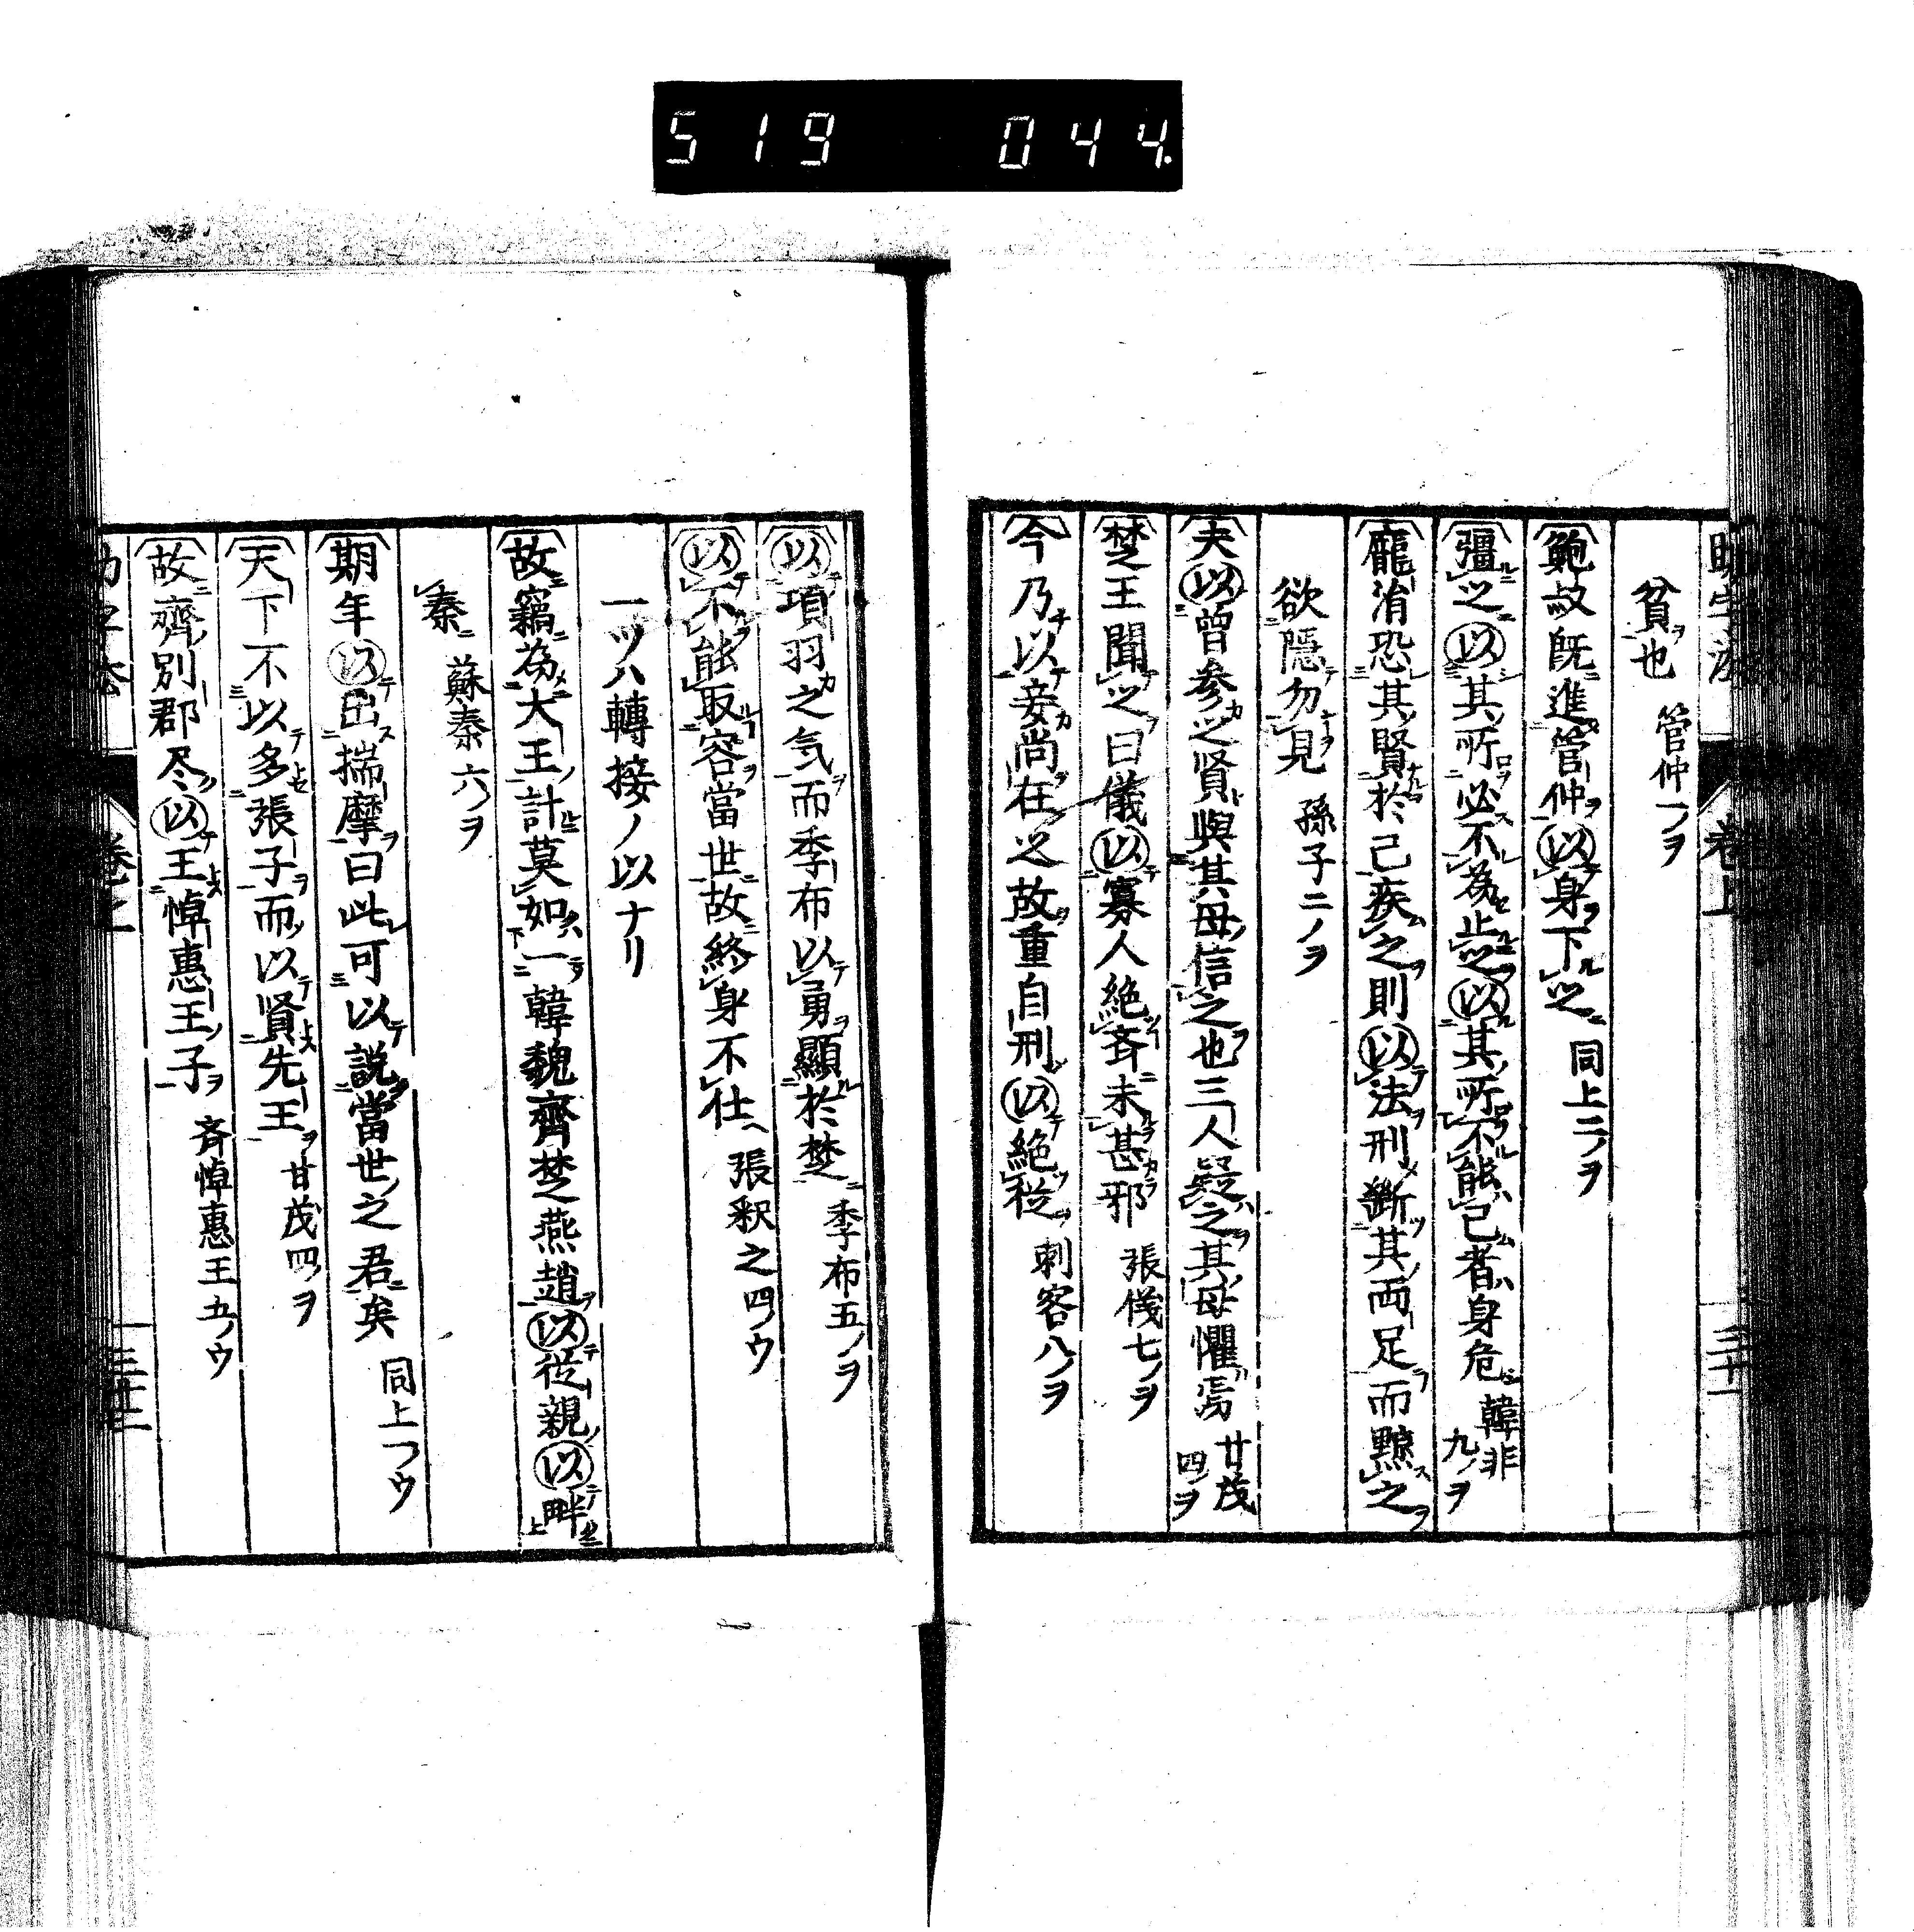 519 044
貧也 管仲一ノヲ
鮑叔既進管仲以身下之 同上二ノヲ
彊之以其所必不為止之以其所不能已者身危 韓非九ノヲ
龐涓恐其賢於己疾之則以法刑断其両足而黥之
欲隠勿見 孫子二ノヲ
夫以曽参之賢與其母信之也三人疑之其母懼焉 甘茂四ノヲ
楚王聞之曰儀以寡人絶斉未甚邪 張儀七ノヲ
今乃以妾尚在之故重自刑以絶従 刺客八ノヲ
以項羽之気而季布以勇顯於楚 季布五ノヲ
以不能取容當世故終身不仕 張釈之四ノウ
一ツハ轉接ノ以ナリ
故竊為大王計莫如一韓魏齊楚燕趙以従親以畔
秦 蘇秦六ノヲ
期年以出揣摩曰此可以説當世之君矣 同上一ノウ
天下不以多張子而以賢先王 甘茂四ノヲ
故齊別郡尽以王悼惠王子 斉悼惠王五ノウ